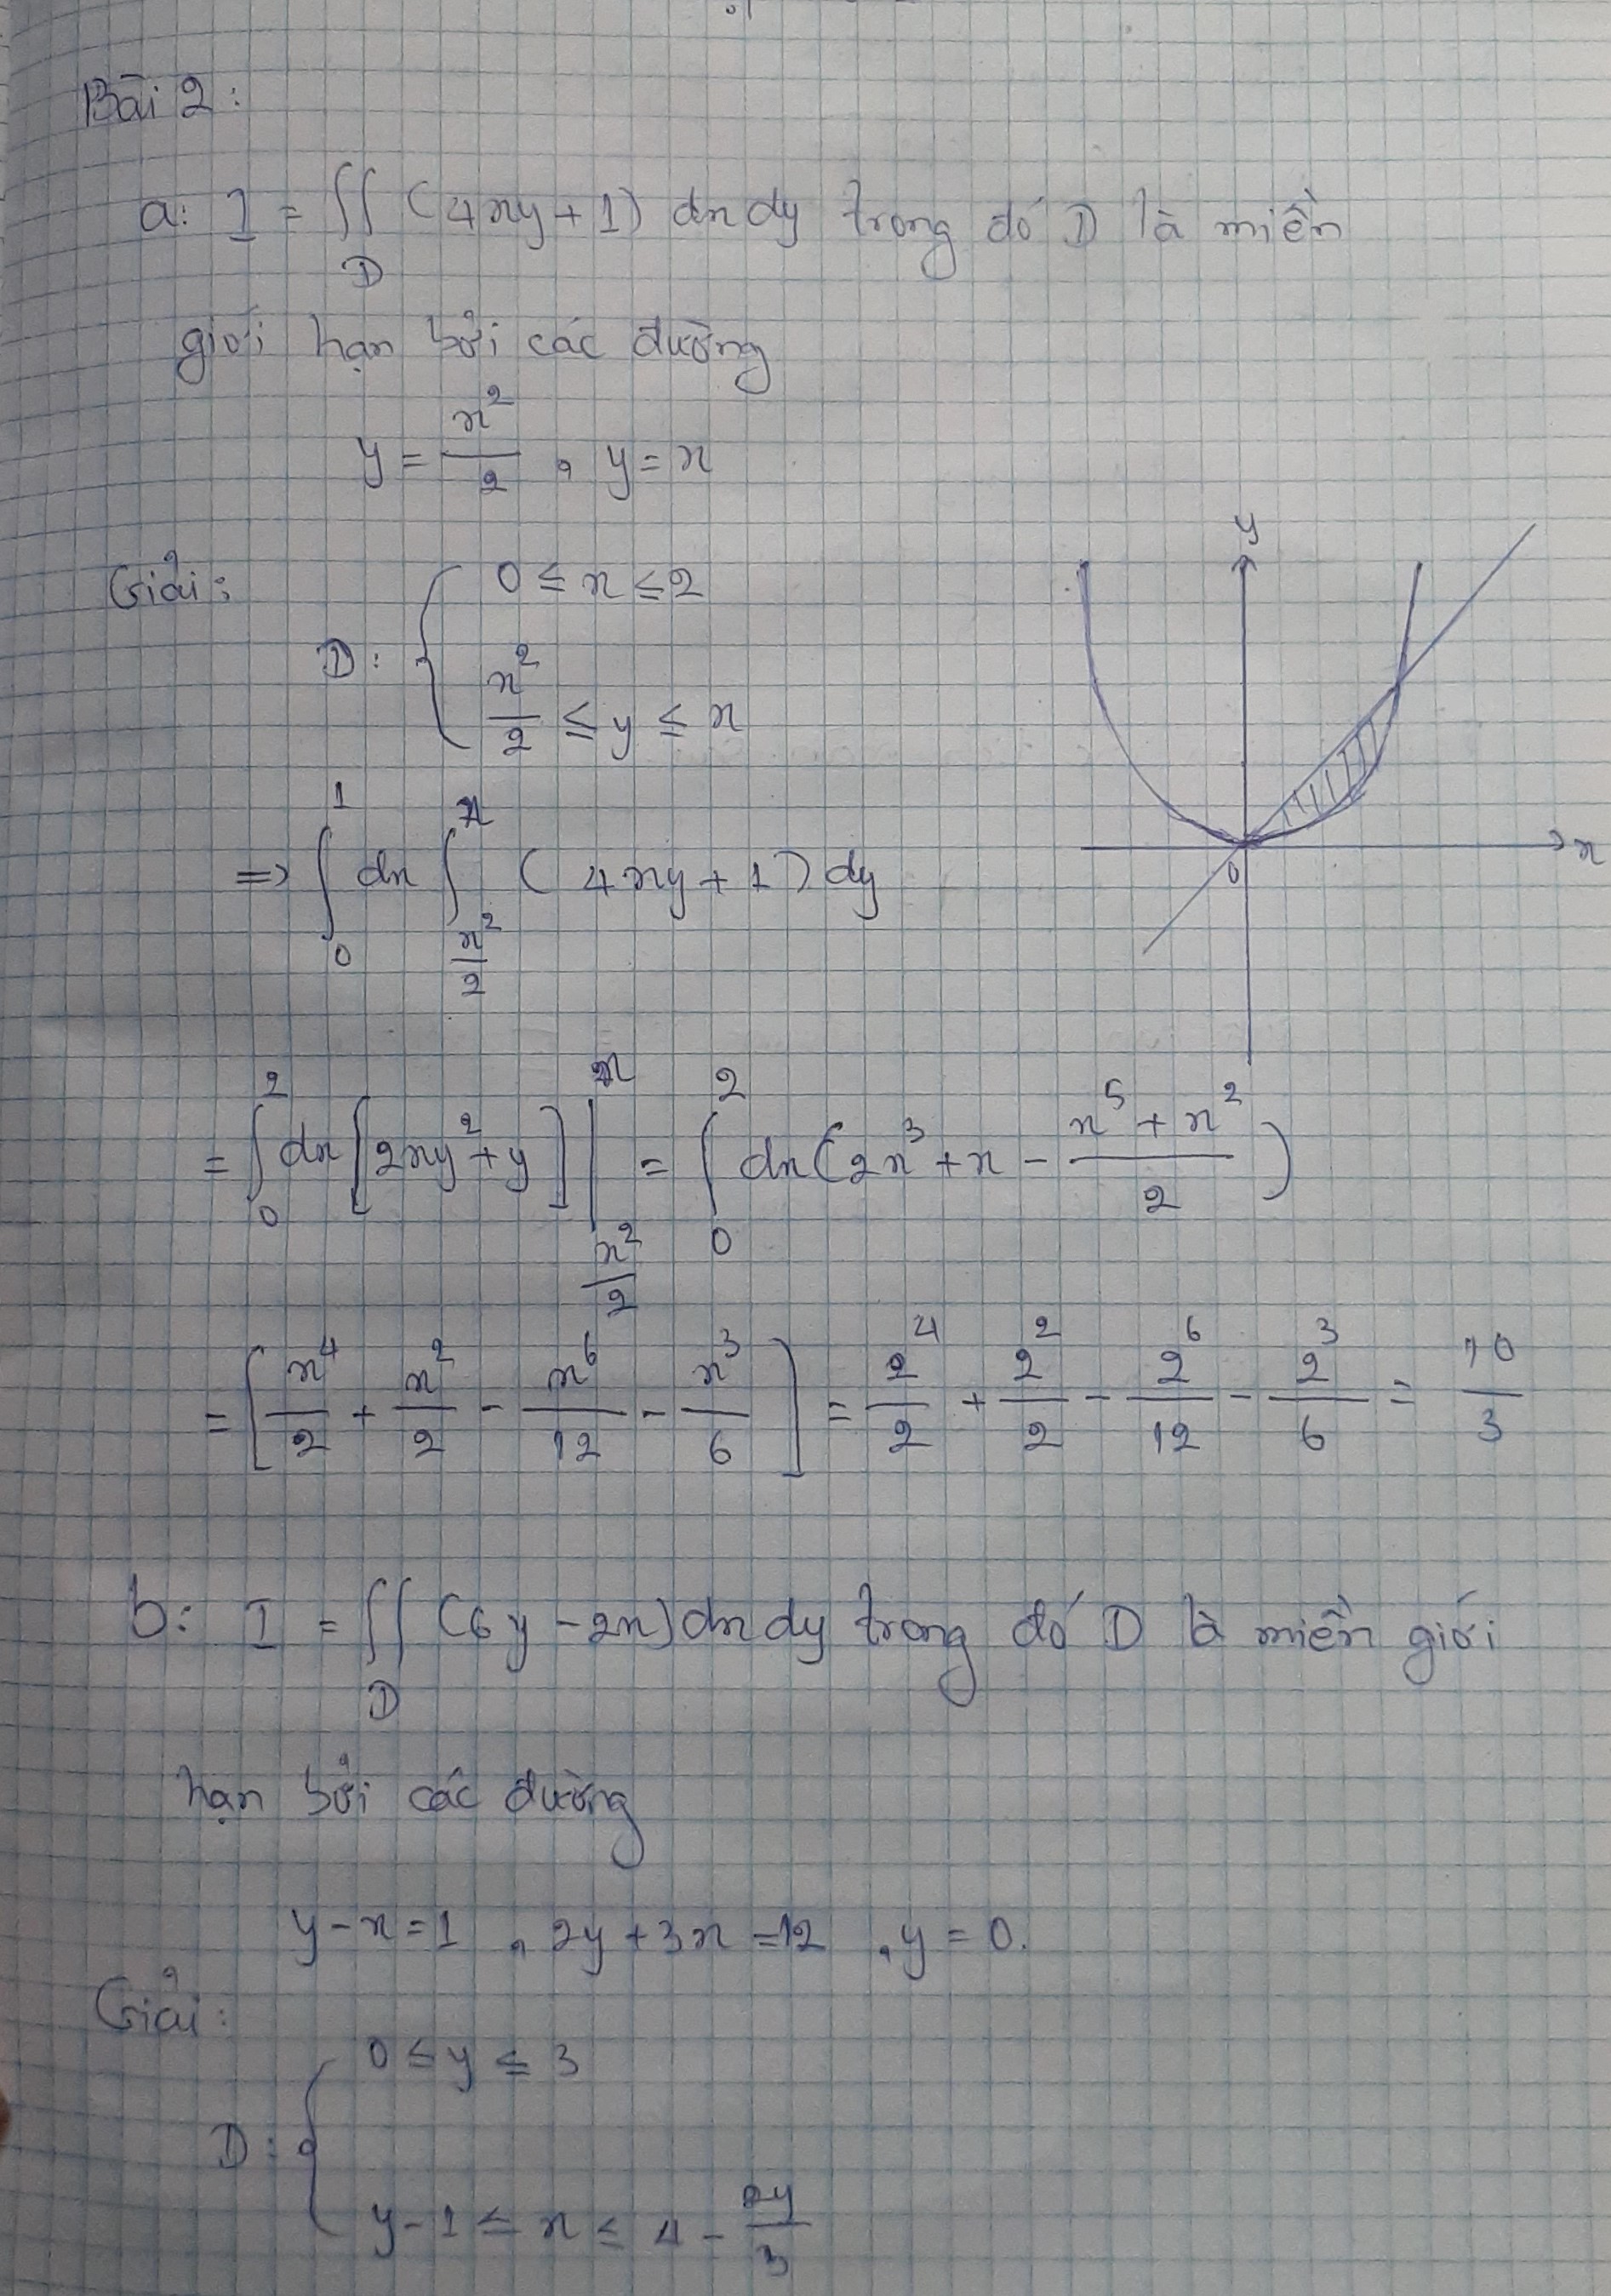 Bài 2:
a: I = ∬_D (4xy + 1) dx dy trong đó D là miền
giới hạn bởi các đường
y = x²/2 , y = x
Giải:
D: { 0 ≤ x ≤ 2
x²/2 ≤ y ≤ x
y
x
0
=> ∫_0^1 dx ∫_{x²/2}^x (4xy + 1) dy
= ∫_0^2 dx [2xy² + y] |_{x²/2}^x = ∫_0^2 dx (2x³ + x - (x⁵ + x²)/2)
= [x⁴/2 + x²/2 - x⁶/12 - x³/6] = 2⁴/2 + 2²/2 - 2⁶/12 - 2³/6 = 10/3
b: I = ∬_D (6y - 2x) dx dy trong đó D là miền giới
hạn bởi các đường
y - x = 1 , 2y + 3x = 12 , y = 0.
Giải:
D: { 0 ≤ y ≤ 3
y - 1 ≤ x ≤ 4 - 2y/3